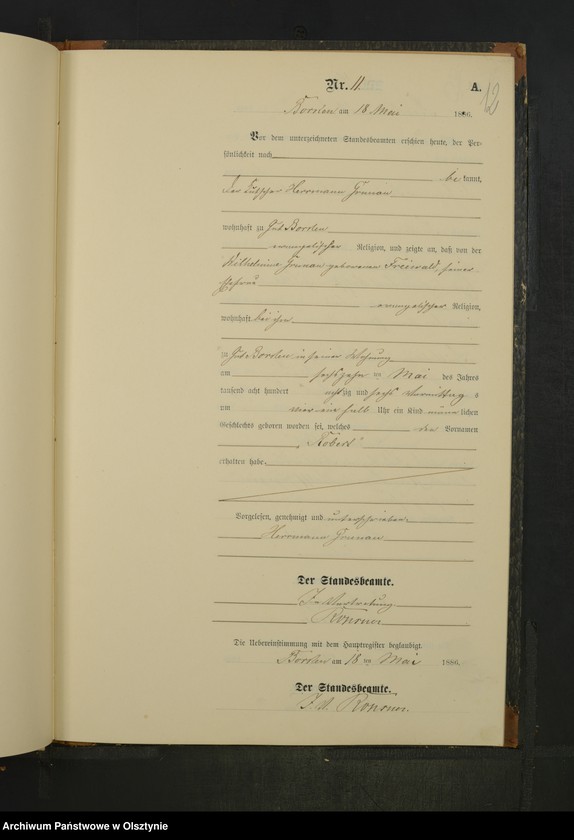 Nr. 11.
A.
12
Borsten am 18 Mai 1886.
Vor dem unterzeichneten Standesbeamten erschien heute, der Per-
sönlichkeit nach
be kannt,
der Kutscher Herrmann
wohnhaft zu Gut
evangelischer Religion, und zeigte an, daß von der
Wilhelmine geborenen Freiwald, seiner
Ehefrau
evangelischer Religion,
wohnhaft bei ihm
zu Gut in seiner Wohnung
am sechszehn ten Mai des Jahres
tausend acht hundert achtzig und sechs Vormittag s
um vier ein halb Uhr ein Kind männ lichen
Geschlechts geboren worden sei, welches den Vornamen
"Robert"
erhalten habe.
Vorgelesen, genehmigt und unterschrieben
Herrmann
Der Standesbeamte.
In Vertretung
Die Uebereinstimmung mit dem Hauptregister beglaubigt
am 18 ten Mai 1886.
Der Standesbeamte.
I. V.
Archiwum Państwowe w Olsztynie